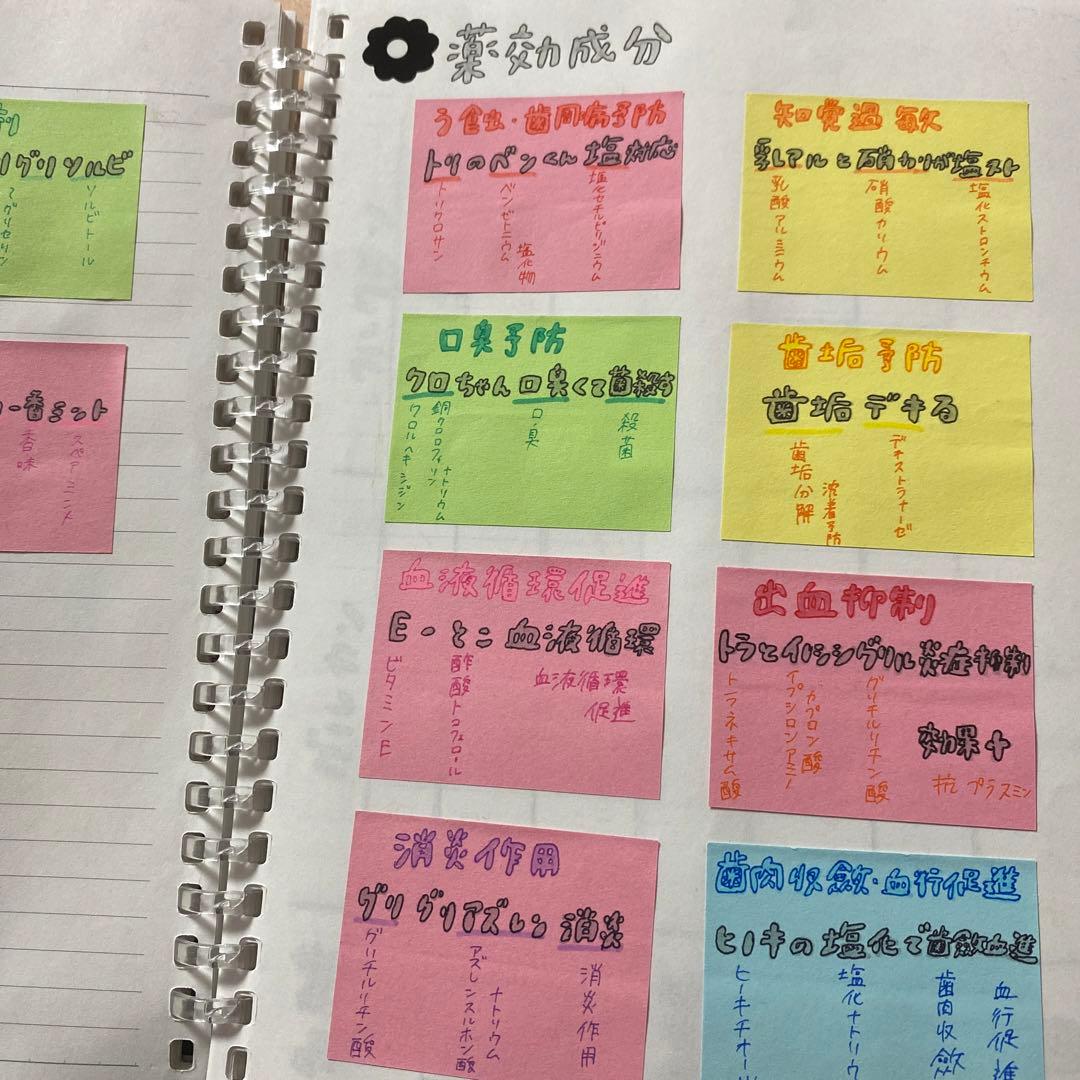 剤
グリソルビ
グリセリン
ソルビトール
一番ミント
香味
スペアミント
薬効成分
う蝕・歯周病予防
トリのベンくん塩対応
トリクロサン
ベンゼトニウム
塩化物
塩化セチルピリジニウム
知覚過敏
乳レアルと硝カリが塩スト
乳酸アルミニウム
硝酸カリウム
塩化ストロンチウム
口臭予防
クロちゃん口臭くて菌殺す
クロルヘキシジン
銅クロロフィリン
ナトリウム
口臭
殺菌
歯垢予防
歯垢デキる
歯垢分解
沈着予防
デキストラナーゼ
血液循環促進
E-とこ血液循環
ビタミンE
酢酸トコフェロール
血液循環
促進
出血抑制
トラとイプシシグリル炎症抑制
トラネキサム酸
イプシロンアミノ
カプロン酸
グリチルリチン酸
効果+
抗プラスミン
消炎作用
グリグリアズレン消炎
グリチルリチン酸
アズレンスルホン酸
ナトリウム
消炎作用
歯肉収斂・血行促進
ヒノキの塩化で歯斂血進
ヒノキチオール
塩化ナトリウ
歯肉収斂
血行促進